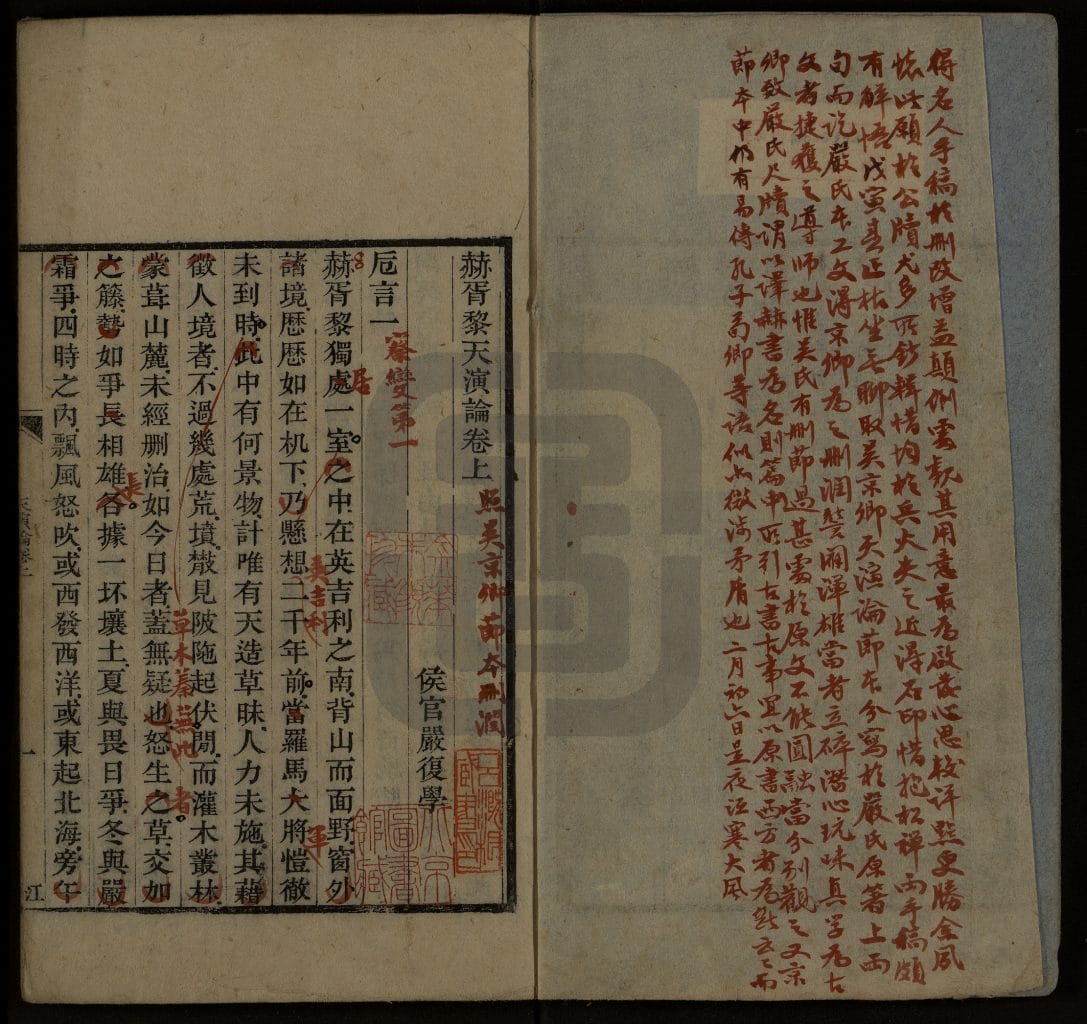 得名人手稿於刪改增益顛倒處觀其用意最為啟發心思校評點更勝余夙
懷此願於公牘尤多所錄輯惜均於兵火失之近得石印惜抱杜禪而手稿頗
有解悟戊寅春正枯坐無聊取吳京卿天演論節本分寫於嚴氏原著上兩
旬而訖嚴氏本工文得京卿為之刪潤警闢渾雄當者立碎潛心玩味真學為古
文者捷獲之導師也惟吳氏有刪節過甚處於原文不能圓融當分別觀之又京
卿致嚴氏尺牘謂以譯赫書為名則篇中所引古書古事宜以原書西方者為然云云而
節本中仍有易傳孔子荀卿等語似亦微涉矛盾也二月初六日呈夜泣寒大風
赫胥黎天演論卷上 照吳京卿節本刪潤
侯官嚴復學
卮言一 察變第一
赫胥黎獨處一室之中在英吉利之南背山而面野窗外
居
諸境歷歷如在机下乃懸想二千年前當羅馬大將愷徹
英吉利
軍
未到時此中有何景物計唯有天造草昧人力未施其藉
徵人境者不過幾處荒墳散見陂陁起伏閒而灌木叢林
草木蓁蕪此
者
蒙茸山麓未經刪治如今日者蓋無疑也怒生之草交加
也
之藤勢如爭長相雄各據一抔壤土夏與畏日爭冬與嚴
長
霜爭四時之內飄風怒吹或西發西洋或東起北海旁午
天演論卷上
一
江